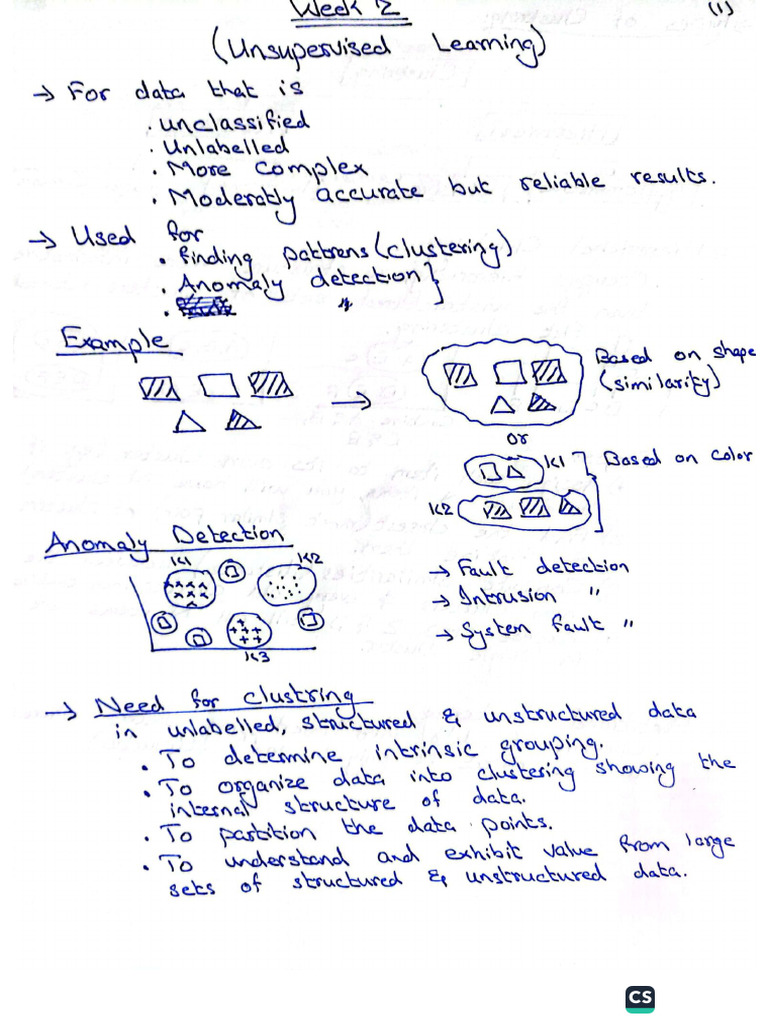 Week 2
(1)
(Unsupervised Learning)
→ For data that is
. unclassified
. Unlabelled
. More complex
. Moderatly accurate but reliable results.
→ Used for
. finding pattrens (clustering)
. Anomaly detection }
Example
Based on shape
(similarity)
or
K1
Based on color
K2
Anomaly Detection
K1
K2
K3
→ Fault detection
→ Intrusion "
→ System fault "
→ Need for clustring
in unlabelled, structured & unstructured data
. To determine intrinsic grouping.
. To organize data into clustering showing the
internal structure of data.
. To partition the data points.
. To understand and exhibit value from large
sets of structured & unstructured data.
CS